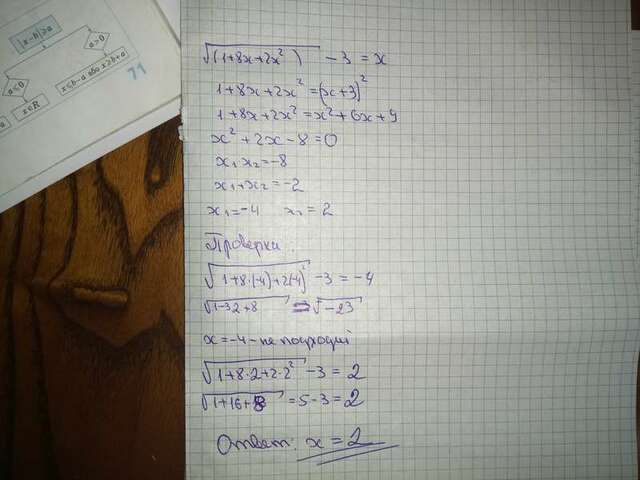 |x-b|≥a
a>0
a≤0
x≤b-a або x≥b+a
x∈R
71
√(1+8x+2x²) - 3 = x
1+8x+2x²=(x+3)²
1+8x+2x²=x²+6x+9
x²+2x-8=0
x₁x₂=-8
x₁+x₂=-2
x₁=-4 x₂=2
Проверка:
√(1+8·(-4)+2(-4)²) -3 = -4
√(1-32+8) = √(-23)
x=-4 - не подходит
√(1+8·2+2·2²) -3 = 2
√(1+16+8) = 5-3 = 2
Ответ: x=2